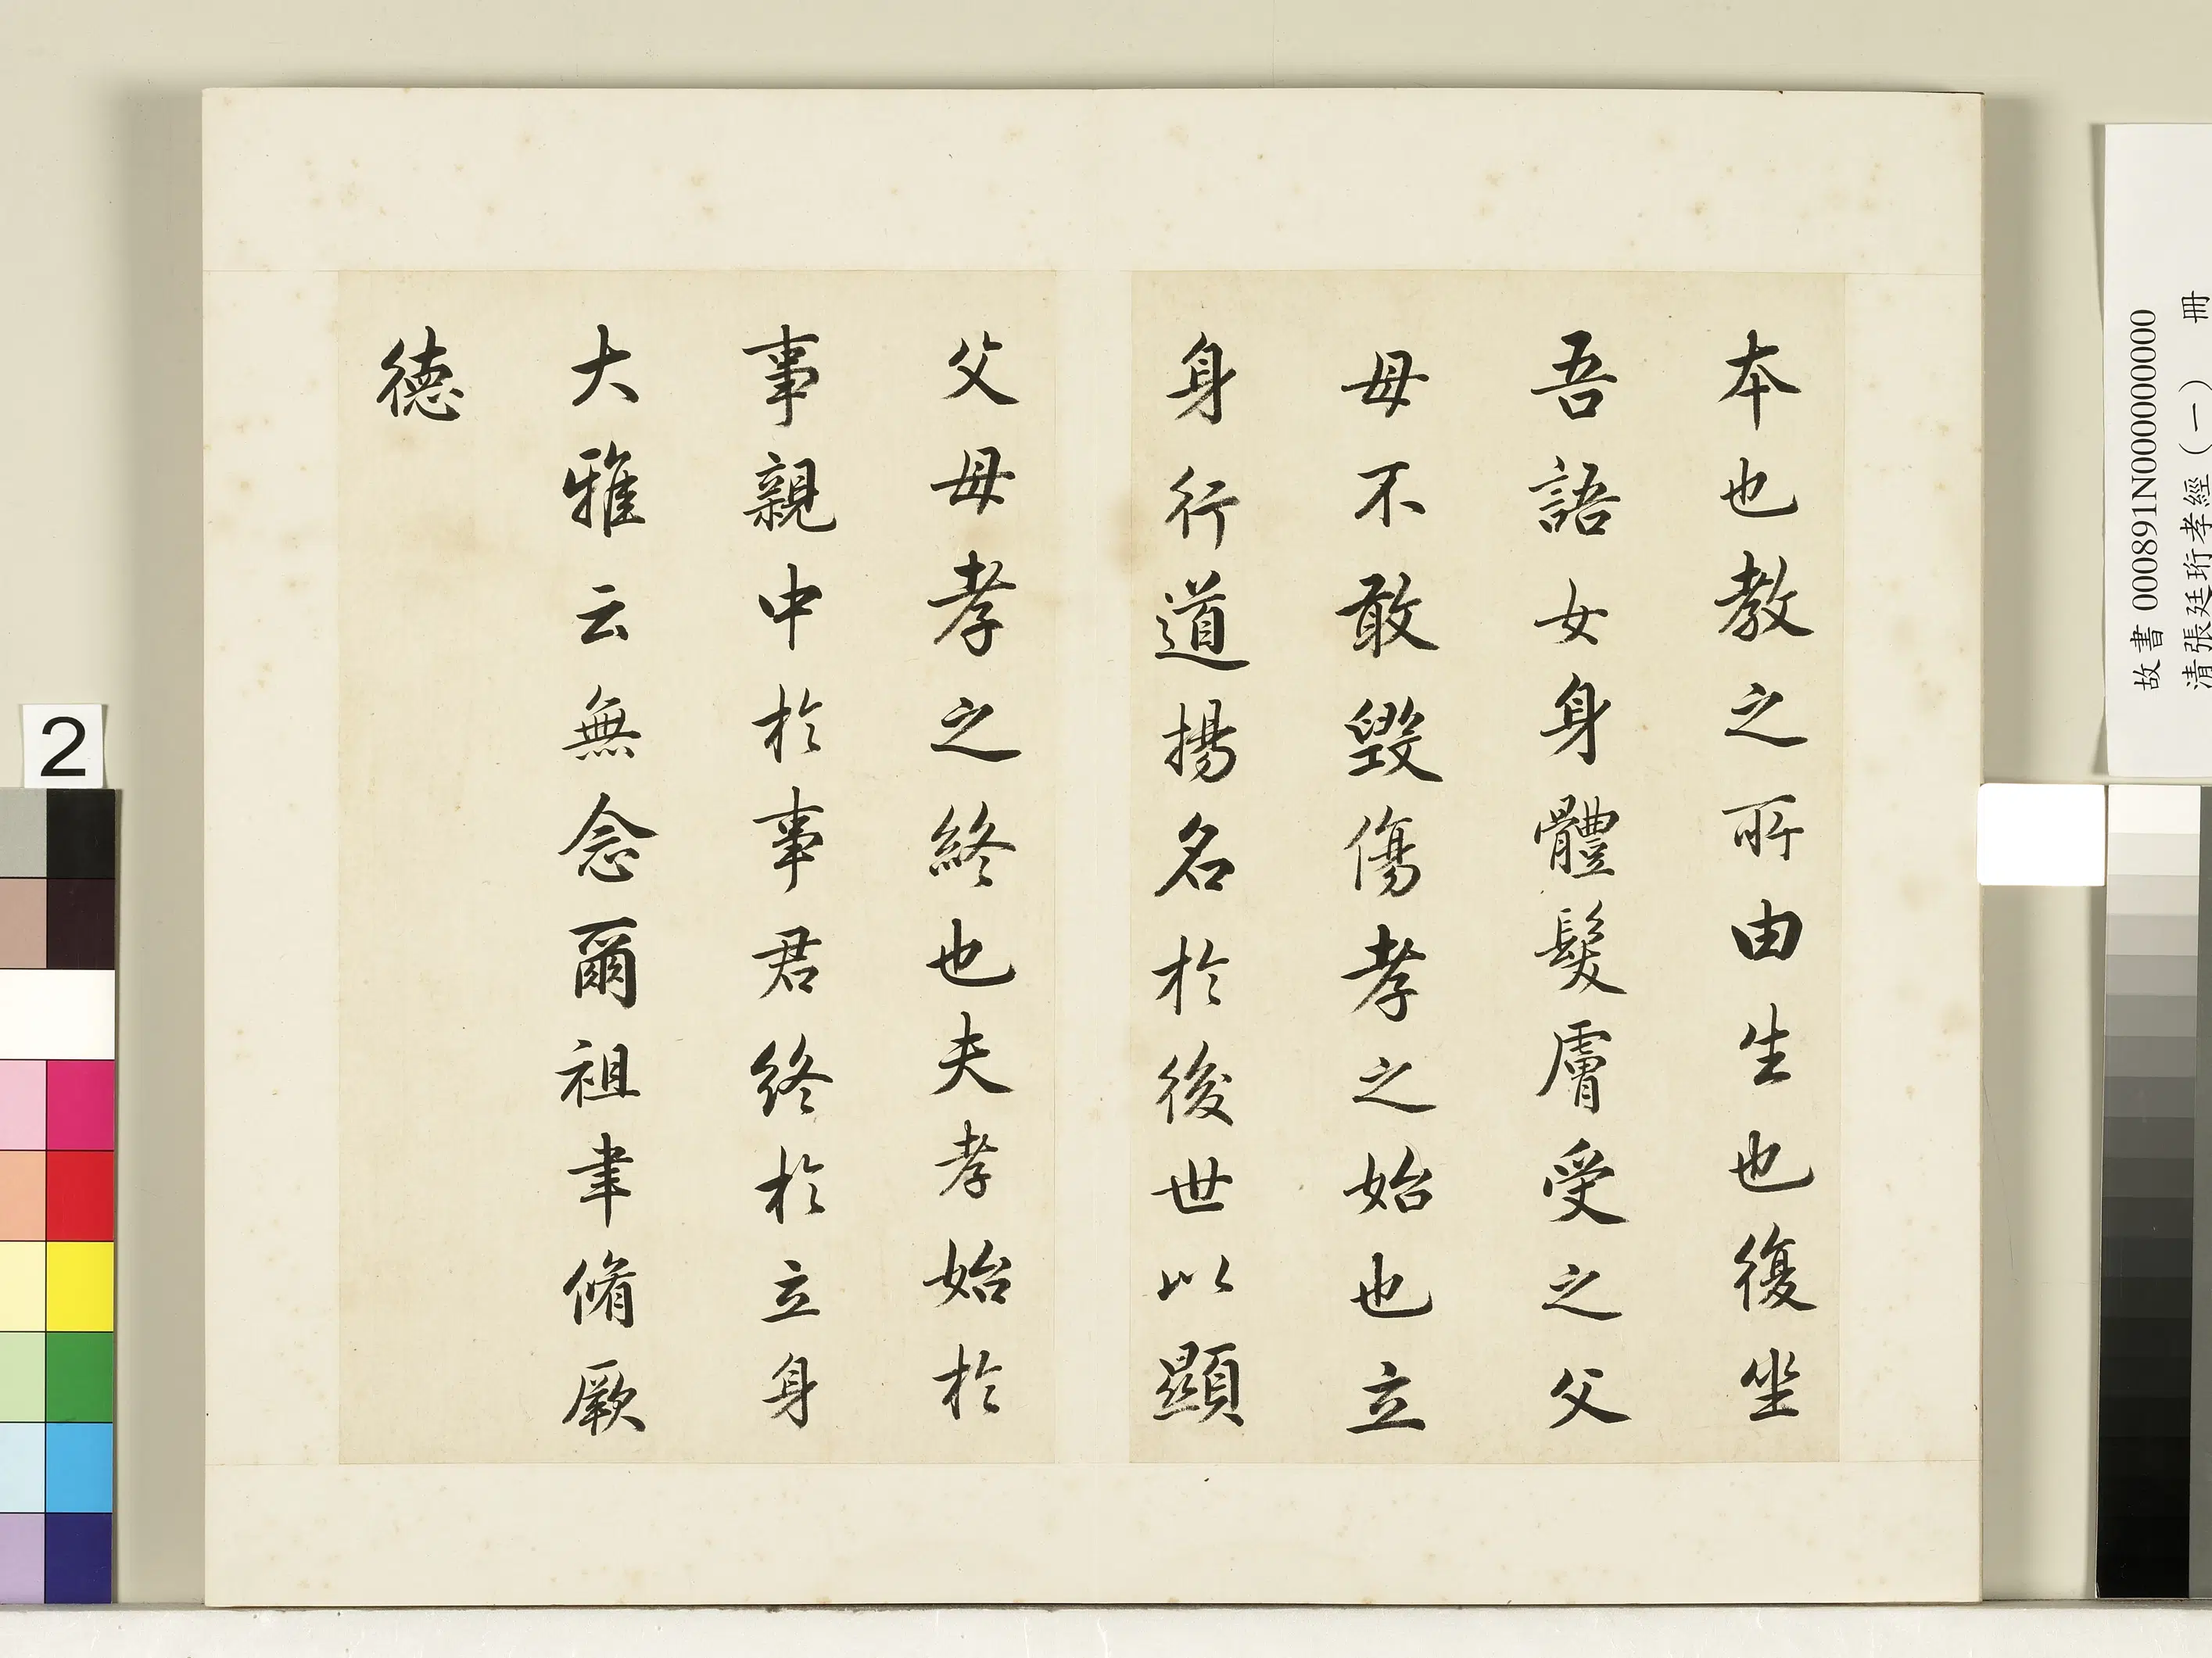 本也教之所由生也復坐
吾語女身體髮膚受之父
母不敢毀傷孝之始也立
身行道揚名於後世以顯
父母孝之終也夫孝始於
事親中於事君終於立身
大雅云無念爾祖聿脩厥
德
故書 000891N000000000
清張廷珩孝經(一) 冊
2